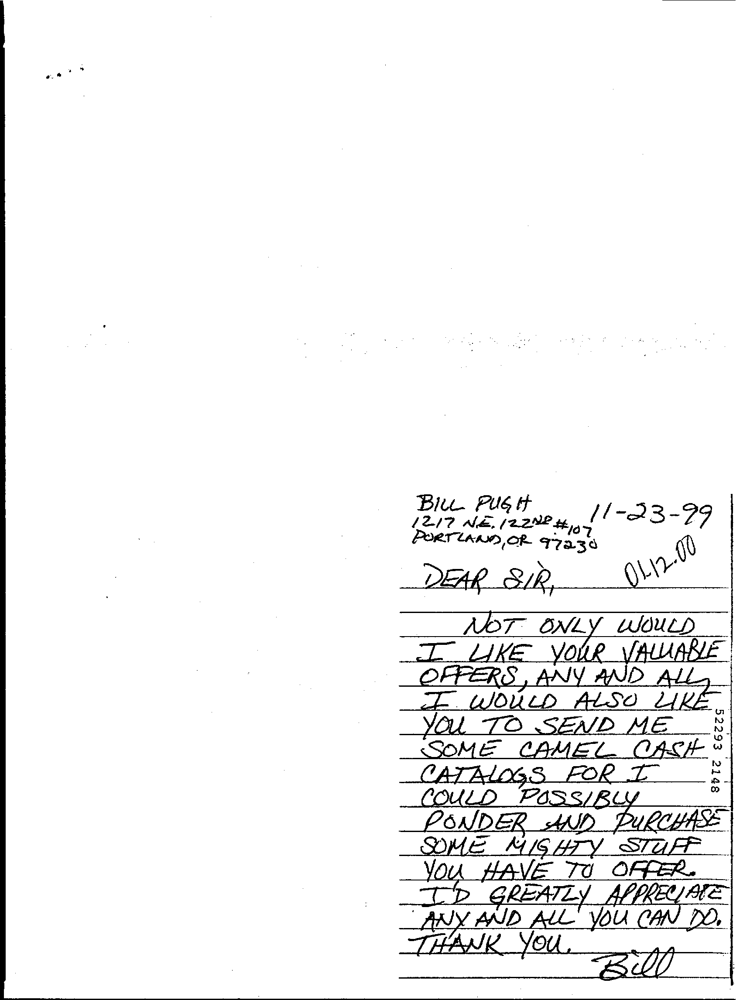 BILL PUGH
1217 N.E. 122ND #107
PORTLAND, OR 97230
11-23-99
DEAR SIR,
NOT ONLY WOULD
I LIKE YOUR VALUABLE
OFFERS, ANY AND ALL,
I WOULD ALSO LIKE
YOU TO SEND ME
SOME CAMEL CASH
CATALOGS FOR I
COULD POSSIBLY
PONDER AND PURCHASE
SOME MIGHTY STUFF
YOU HAVE TO OFFER.
I'D GREATLY APPRECIATE
ANY AND ALL YOU CAN DO.
THANK YOU.
Bill
52293 2148